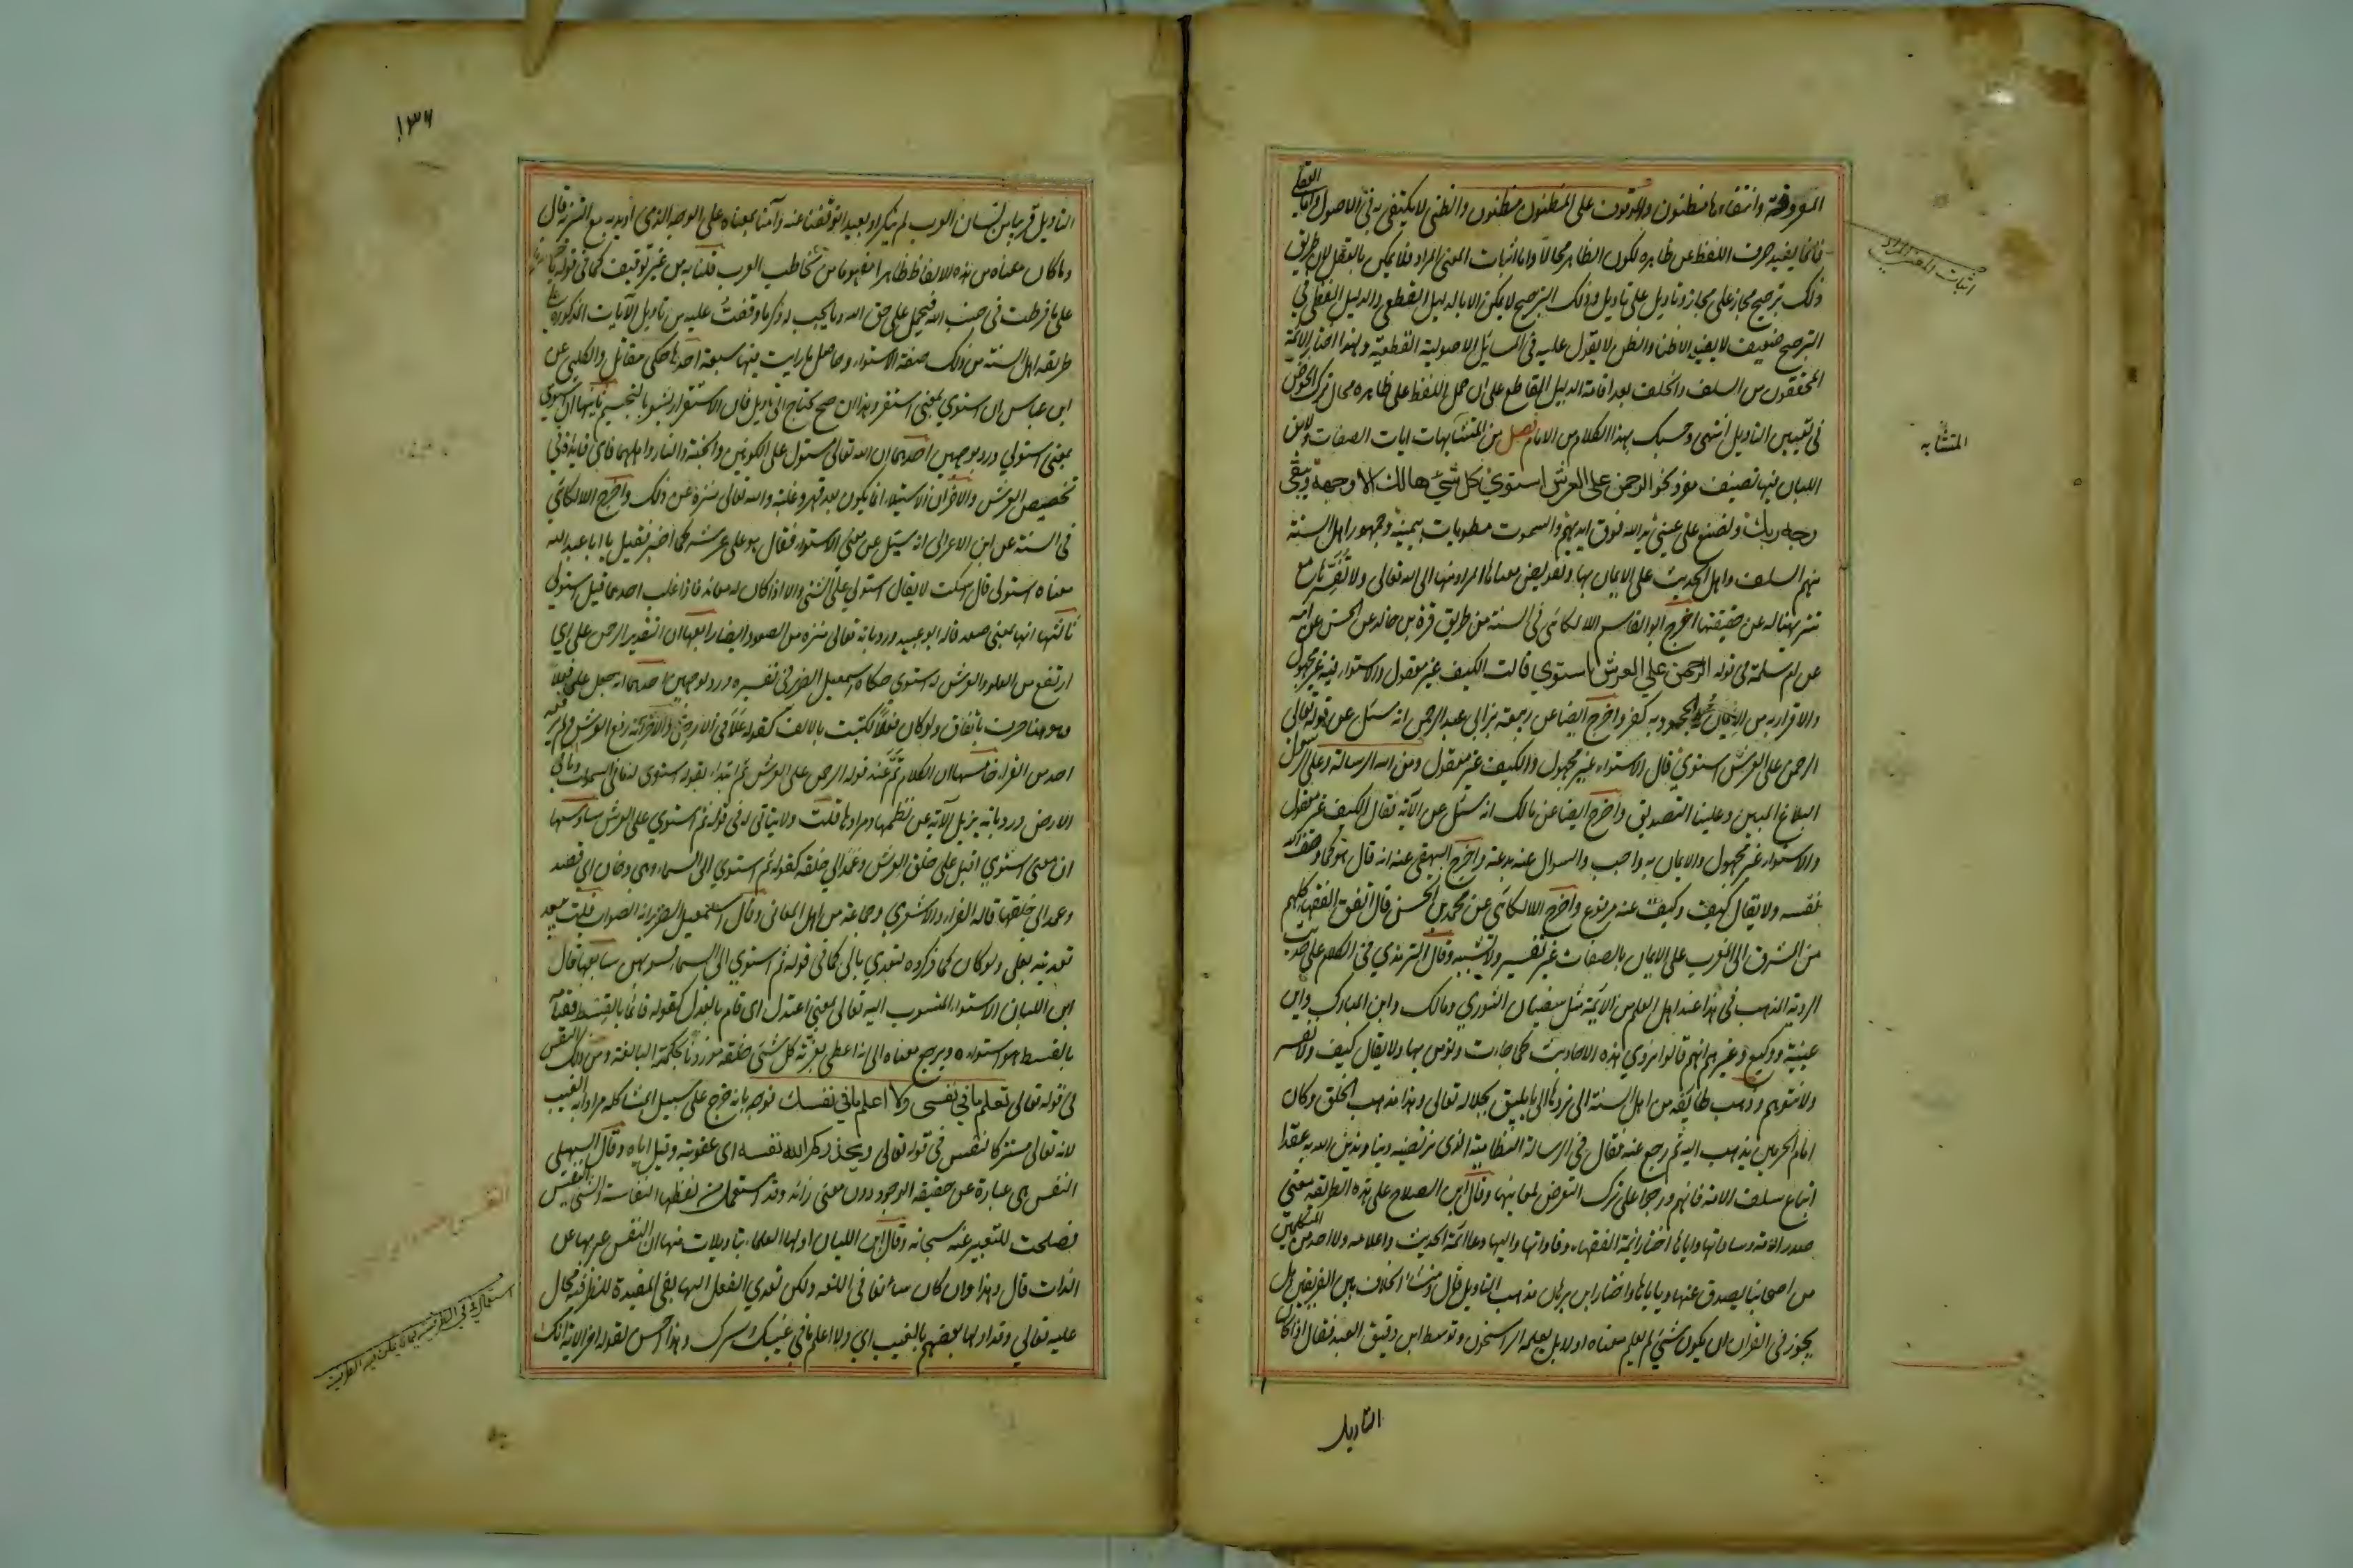 المعروفة وانتفاءها مظنون والموقوف على المظنون مظنون والظنى لا يكتفى به فى الاصول واما العقلى
فانما يفيد صرف اللفظ عن ظاهره لكون الظاهر محالا واما اثبات المعنى المراد فلا يمكن بالعقل لان طريق
ذلك ترجيح مجاز على مجاز وتاويل على تاويل وذلك الترجيح لا يمكن الا بالدليل اللفظى والدليل اللفظى فى
الترجيح ضعيف لا يفيد الا الظن والظن لا يعول عليه فى المسائل الاصولية القطعية ولهذا اختار الائمة
المحققون من السلف والخلف بعد اقامة الدليل القاطع على ان حمل اللفظ على ظاهره محال ترك الخوض
فى تعيين التاويل انتهى وحسبك بهذا الكلام من الامام فصل من المتشابهات ايات الصفات ولابن
اللبان فيها تصنيف مفرد نحو الرحمن على العرش استوى كل شئ هالك الا وجهه ويبقى
وجه ربك ولتصنع على عينى يد الله فوق ايديهم والسموت مطويات بيمينه وجمهور اهل السنة
منهم السلف واهل الحديث على الايمان بها وتفويض معناها المراد منها الى الله تعالى ولا نفسرها مع
تنزيهنا له عن حقيقتها اخرج ابو القاسم اللالكائى فى السنة من طريق قرة بن خالد عن الحسن عن امه
عن ام سلمة فى قوله الرحمن على العرش استوى قالت الكيف غير معقول والاستواء غير مجهول
والاقرار به من الايمان والجحود به كفر واخرج ايضا عن ربيعة بن ابى عبد الرحمن انه سئل عن قوله تعالى
الرحمن على العرش استوى فقال الاستواء غير مجهول والكيف غير معقول ومن الله الرسالة وعلى الرسول
البلاغ المبين وعلينا التصديق واخرج ايضا عن مالك انه سئل عن الآية فقال الكيف غير معقول
والاستواء غير مجهول والايمان به واجب والسوال عنه بدعة واخرج البيهقى عنه انه قال هو كما وصف الله
نفسه ولا يقال كيف وكيف عنه مرفوع واخرج اللالكائى عن محمد بن الحسن قال اتفق الفقهاء كلهم
من المشرق الى المغرب على الايمان بالصفات غير تفسير ولا تشبيه وقال الترمذى فى الكلام على حديث
الروية المذهب فى هذا عند اهل العلم من الائمة مثل سفيان الثوري ومالك وابن المبارك وابن
عيينة ووكيع وغيرهم انهم قالوا نروي هذه الاحاديث كما جاءت ونؤمن بها ولا يقال كيف ولا نفسر
ولا نتوهم وذهب طائفة من اهل السنة الى نروها الى ما يليق بجلاله تعالى وهذا مذهب الخلق وكان
امام الحرمين يذهب اليه ثم رجع عنه فقال فى الرسالة النظامية الذى نرتضيه دينا وندين الله به عقدا
اتباع سلف الامة فانهم درجوا على ترك التعرض لمعانيها وقال ابن الصلاح على هذه الطريقة مضى
صدر الامة وساداتها واياها اختار ائمة الفقهاء وقاداتها واليها دعا ائمة الحديث واعلامه ولا احد من المتكلمين
من اصحابنا يصدف عنها ويأباها واختار ابن برهان مذهب التاويل قال ومنشاء الخلاف بين الفريقين هل
يجوز فى القرآن ان يكون شئ لم نعلم معناه او لا بل يعلمه الراسخون وتوسط ابن دقيق العيد فقال اذا كان
التاويل
اثبات المعنى المراد
المتشابه
١٣٦
التاويل قريبا من لسان العرب لم ينكر او بعيدا توقفنا عنه وآمنا بمعناه على الوجه الذى اريد به مع التنزيه قال
وما كان معناه من هذه الالفاظ ظاهرا مفهوما من تخاطب العرب قلنا به من غير توقيف كما فى قوله يا حسرتى
على ما فرطت فى جنب الله فنحمله على حق الله وما يجب له ذكر ما وقفت عليه من تاويل الآيات المذكورة على
طريقة اهل السنة من ذلك صفة الاستواء وحاصل ما رايت فيها سبعة احدها حكى مقاتل والكلبى عن
ابن عباس ان استوى بمعنى استقر وهذا ان صح يحتاج الى تاويل فان الاستقرار يشعر بالتجسيم ثانيها ان استوى
بمعنى استولى ورد بوجهين احدهما ان الله تعالى مستول على الكونين والجنة والنار واهلهما فاى فايدة فى
تخصيص العرش والآخر ان الاستيلاء انما يكون بعد قهر وغلبة والله تعالى منزه عن ذلك واخرج اللالكائى
فى السنة عن ابن الاعرابى انه سئل عن معنى الاستواء فقال هو على عرشه كما اخبر فقيل يا ابا عبد الله
معناه استولى قال اسكت لا يقال استولى على الشئ الا اذا كان له مضاد فاذا غلب احدهما قيل استولى
ثالثها انه بمعنى صعد قاله ابو عبيد ورد بانه تعالى منزه من الصعود ايضا رابعها ان التقدير الرحمن على اي
ارتفع من العلو والعرش له استوى حكاه اسمعيل الضرير فى تفسيره ورد بوجهين احدهما انه جعل على فعلا
وهو هنا حرف باتفاق ولو كان فعلا لكتبت بالالف كقوله علا فى الارض والآخر انه رفع العرش ولم يرفعه
احد من القراء خامسها ان الكلام تم عند قوله الرحمن على العرش ثم ابتداء بقوله استوى له ما فى السموات وما فى
الارض ورد بانه يزيل الآية عن نظمها ومرادها قلت ولا يتاتى له فى قوله ثم استوى على العرش سادسها
ان معنى استوى اقبل على خلق العرش وعمد الى خلقه كقوله ثم استوى الى السماء وهى دخان اى قصد
وعمد الى خلقها قاله الفراء والاشعرى وجماعة من اهل المعانى وقال اسمعيل الضرير انه الصواب قلت يبعده
تعديته بعلى ولو كان كما ذكروه لتعدي بالى كما فى قوله ثم استوى الى السماء فسويهن سابعها قال
ابن اللبان الاستواء المنسوب اليه تعالى بمعنى اعتدل اى قام بالعدل كقوله قائما بالقسط فقيامه
بالقسط هو استواءه ويرجع معناه الى انه اعطى بعزته كل شئ خلقه موزونا بحكمته البالغة ومن ذلك النفس
فى قوله تعالى تعلم ما فى نفسى ولا اعلم ما فى نفسك فوجه بانه خرج على سبيل المشاكلة مرادا به الغيب
لانه تعالى مستتر كالنفس فى قوله تعالى ويحذركم الله نفسه اى عقوبته وقيل اياه وقال السهيلى
النفس هى عبارة عن حقيقة الوجود دون معنى زائد وقد استعمل من لفظها النفاسة والشئ النفيس
فصلحت للتعبير عنه سبحانه وقال ابن اللبان اولها العلماء بتاويلات منها ان النفس عبر بها عن
الذات قال وهذا وان كان سائغا فى اللغة ولكن تعدي الفعل اليها بفى المفيدة للظرفية محال
عليه تعالى وقد اولها بعضهم بالغيب اي ولا اعلم ما في غيبك وسرك وهذا حسن لقوله آخر الآية انك